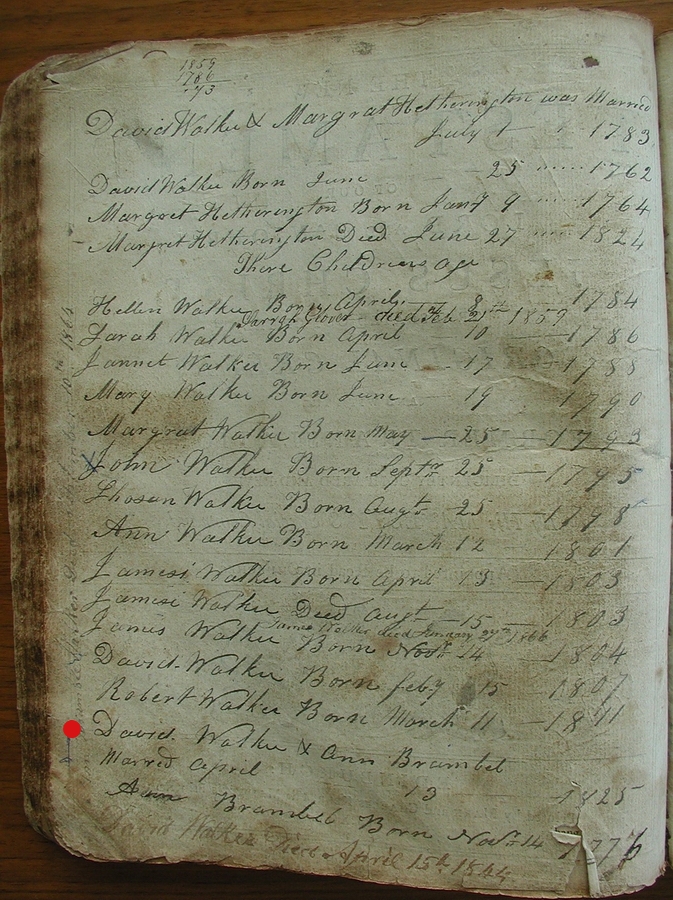 1859
1786
73
David Walker & Margrat Hetherington was Married
July 1 1783
David Walker Born June 25 1762
Margret Hetherington Born Jany 9 1764
Margret Hetherington Died June 27 1824
There Childrens age
Hellen Walker Born April 8 1784
Sarrah Glover died Feb 21th 1859
Sarah Walker Born April 10 1786
Jannet Walker Born June 17 1788
Mary Walker Born June 19 1790
Margrat Walker Born May 25 1793
John Walker Born Septr 25 1795
Thosan Walker Born Augt 25 1798
Ann Walker Born March 12 1801
James Walker Born April 13 1803
Jamese Walker Deed Augt 15 1803
James Walker died January 27th 1866
James Walker Born Novr 14 1804
David Walker Born feby 15 1807
Robert Walker Born March 11 1811
David Walker & Ann Brambel
Marred April 13 1825
Ann Brambel Born Novr 14 1776
David Walker Died April 15th 1864